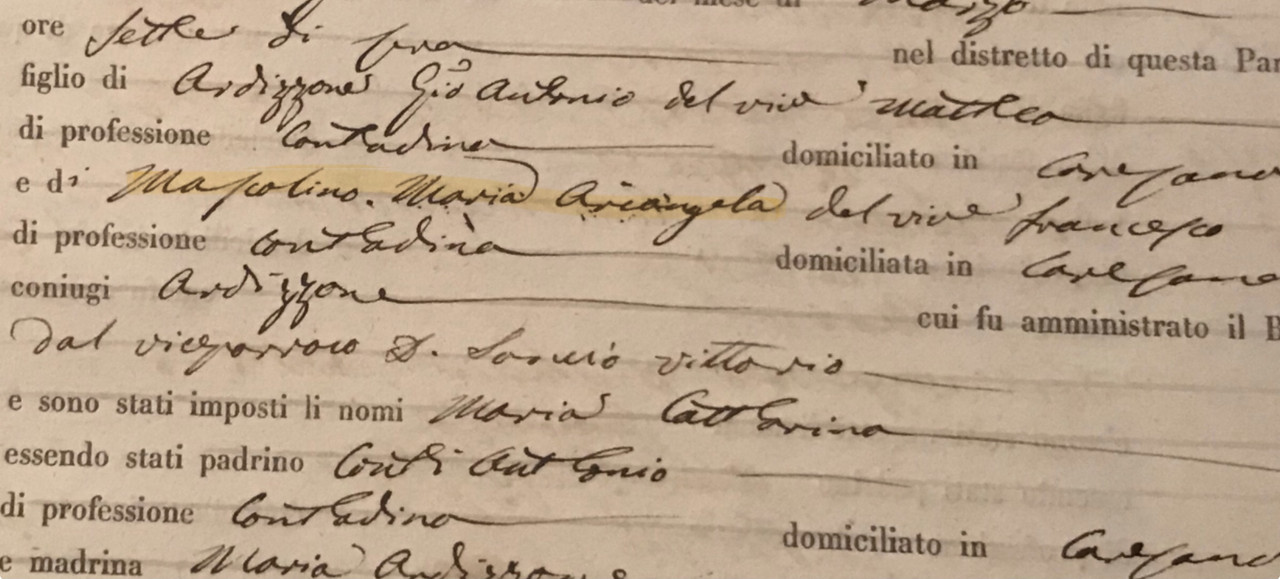 del mese di Marzo
ore sette di sera nel distretto di questa Par
figlio di Ardizzone Gio Antonio del vivo Matteo
di professione Contadino domiciliato in Carezano
e di Masolino. Maria Arcangela del vivo francesco
di professione contadina domiciliata in Carezano
coniugi Ardizzone cui fu amministrato il B
dal viceparroco D. vittorio
e sono stati imposti li nomi Maria Catterina
essendo stati padrino Conti Antonio
di professione Contadino domiciliato in Carezano
e madrina Maria Ardizzone